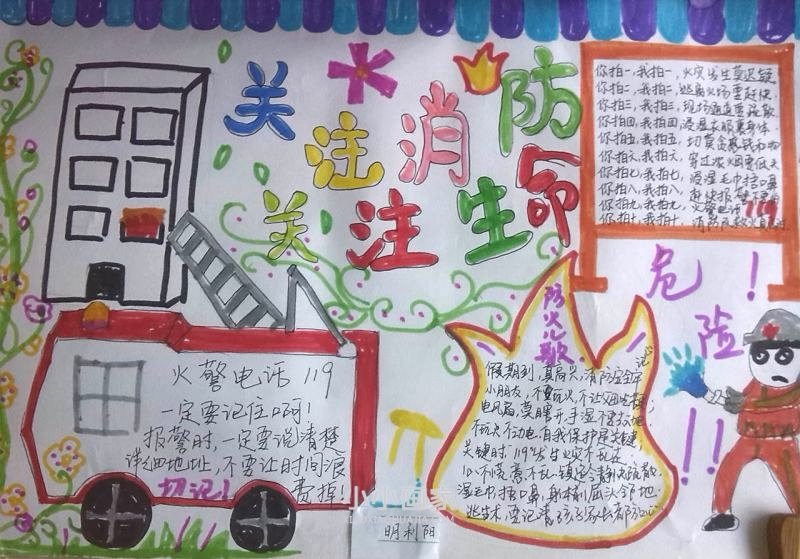 关注消防
关注生命
你拍一,我拍一,火灾发生莫迟疑
你拍二,我拍二,逃离火场要赶快
你拍三,我拍三,现场通道要疏散
你拍四,我拍四,浸湿衣服裹身体
你拍五,我拍五,切莫贪恋钱和物
你拍六,我拍六,穿过浓烟要低头
你拍七,我拍七,浸湿毛巾捂口鼻
你拍八,我拍八,赶快报警
你拍九,我拍九,火警电话119
你拍十,我拍十,消防
危险!
!!
防火歌
假期到,真高兴,消防安全牢记
小朋友,不要玩火,
手湿不要
不玩火不动电,自我保护是关键
关键时,119,发生火灾不乱
不慌乱,镇定冷静快疏散
湿毛巾捂口鼻,
火警电话119
一定要记住啊!
报警时,一定要说清楚
详细地址,不要让时间浪
费掉!
切记!
小小画家
XIAOXIAOHUAJIA.COM
明利阳